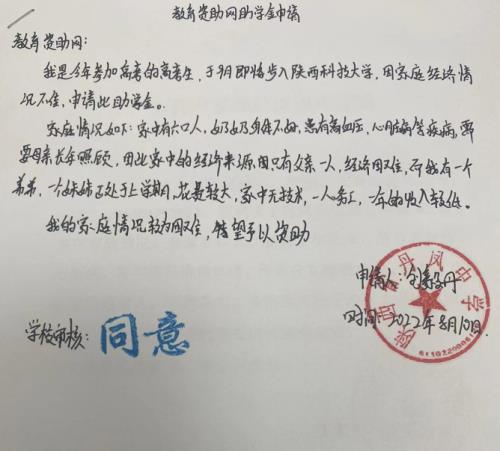 教育资助网助学金申请
教育资助网：
我是今年参加高考的高考生，于9月即将步入陕西科技大学，因家庭经济情
况不佳，申请此助学金。
家庭情况如下：家中有六口人，奶奶身体不好，患有高血压，心脏病等疾病，需
要母亲长年照顾，因此家中的经济来源只有父亲一人，经济困难，而我有一个
弟弟，一妹妹正处于上学期，花费较大，家中无技术，一人务工，一年的收入较低。
我的家庭情况较为困难，希望予以资助
申请人：
丹
时间：2022年8月10日
学校审核：同意
陕西丹凤中学